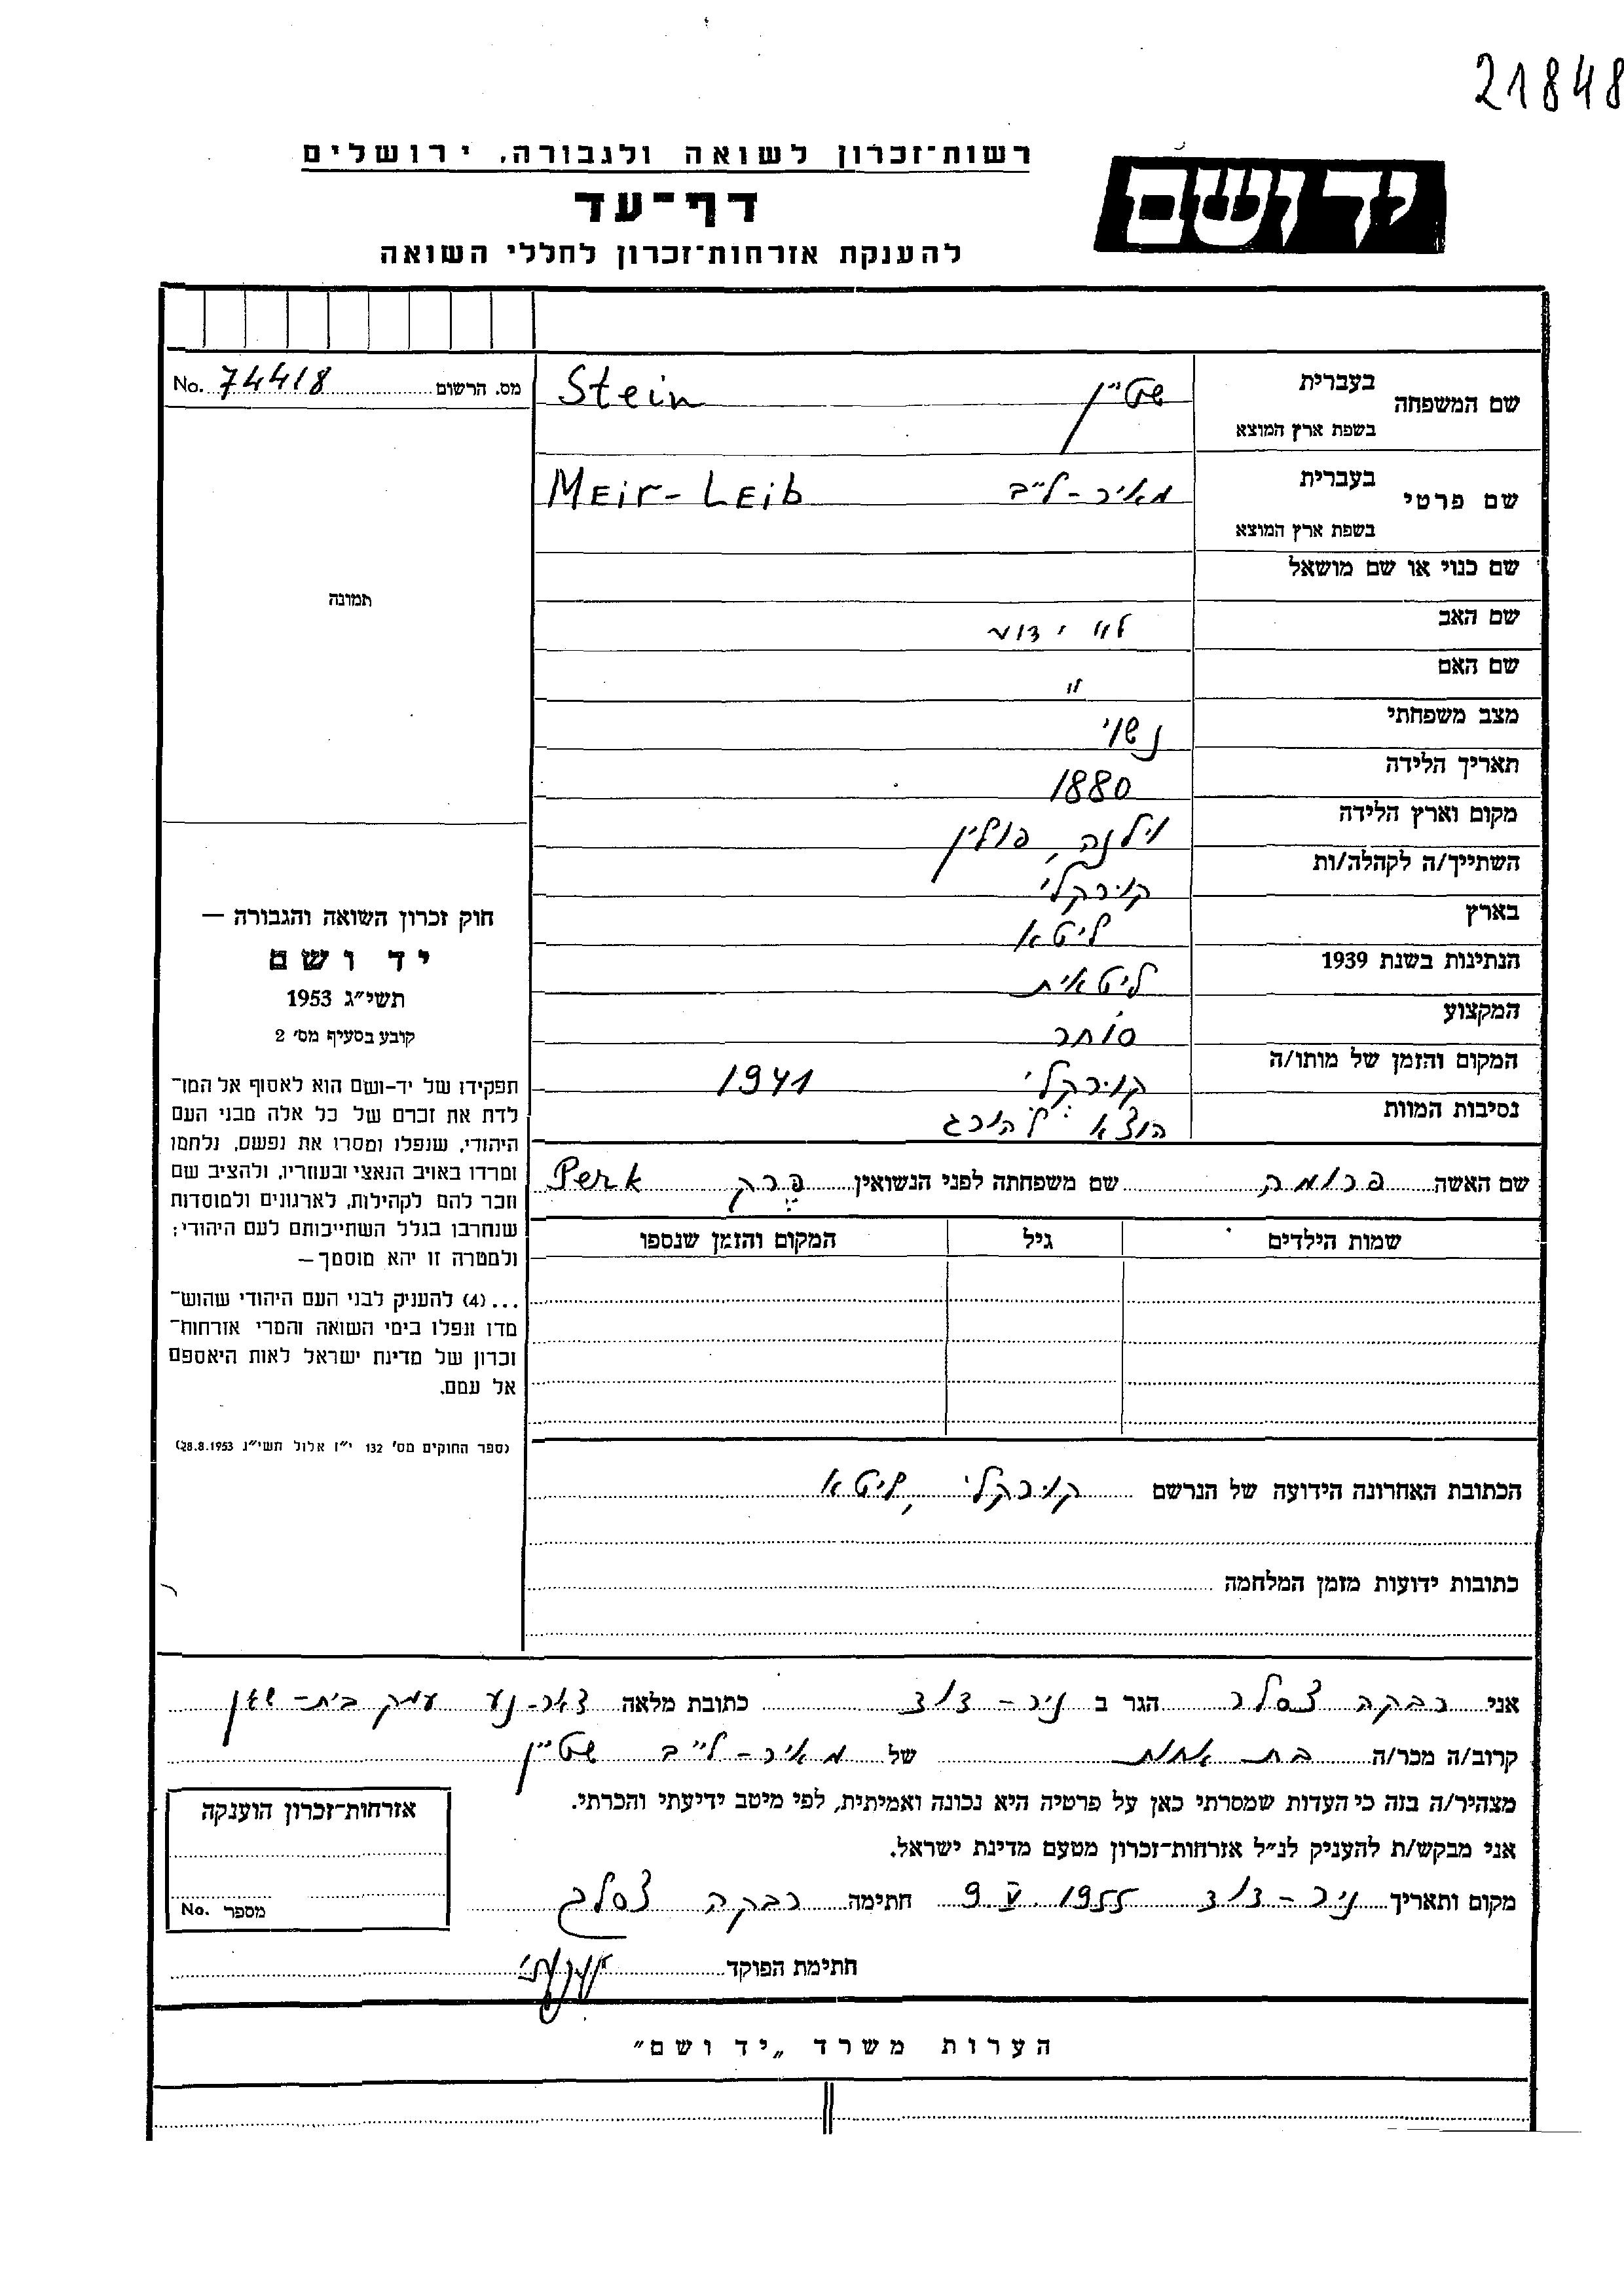 21848
רשות־זכרון לשואה ולגבורה, ירושלים
יד ושם
דף־עד
להענקת אזרחות־זכרון לחללי השואה
מס. הרשום 74418 No.
שם המשפחה בעברית שטיין Stein
בשפת ארץ המוצא
שם פרטי בעברית מאיר-לייב MEir-LEib
בשפת ארץ המוצא
שם כנוי או שם מושאל
שם האב לא ידוע
שם האם "
מצב משפחתי נשוי
תאריך הלידה 1880
מקום וארץ הלידה וילנה, פולין
השתייך/ה לקהלה/ות קוירקלי
בארץ ליטא
הנתינות בשנת 1939 ליטאית
המקצוע סוחר
המקום והזמן של מותו/ה קוירקלי 1941
נסיבות המוות הוצא להורג
שם האשה פרומה שם משפחתה לפני הנשואין פרק Perk
שמות הילדים גיל המקום והזמן שנספו
הכתובת האחרונה הידועה של הנרשם קוירקלי, ליטא
כתובות ידועות מזמן המלחמה
תמונה
חוק זכרון השואה והגבורה —
יד ושם
תשי״ג 1953
קובע בסעיף מס׳ 2
תפקידו של יד-ושם הוא לאסוף אל המו־
לדת את זכרם של כל אלה מבני העם
היהודי, שנפלו ומסרו את נפשם, נלחמו
ומרדו באויב הנאצי ובעוזריו, ולהציב שם
וזכר להם לקהילות, לארגונים ולמוסדות
שנחרבו בגלל השתייכותם לעם היהודי;
ולמטרה זו יהא מוסמך —
...(4) להעניק לבני העם היהודי שהוש־
מדו ונפלו בימי השואה והמרי אזרחות־
זכרון של מדינת ישראל לאות היאספם
אל עמם.
(ספר החוקים מס׳ 132 י״ז אלול תשי״ג 28.8.1953)
אני רבקה צסלר הגר ב ניר-דוד כתובת מלאה דאר-נע עמק בית-שאן
קרוב/ה מכר/ה בת אחות של מאיר-לייב שטיין
מצהיר/ה בזה כי העדות שמסרתי כאן על פרטיה היא נכונה ואמיתית, לפי מיטב ידיעתי והכרתי.
אני מבקש/ת להעניק לנ״ל אזרחות־זכרון מטעם מדינת ישראל.
מקום ותאריך ניר-דוד 9 V 1955 חתימה רבקה צסלר
חתימת הפוקד
אזרחות־זכרון הוענקה
מספר No.
הערות משרד „יד ושם״